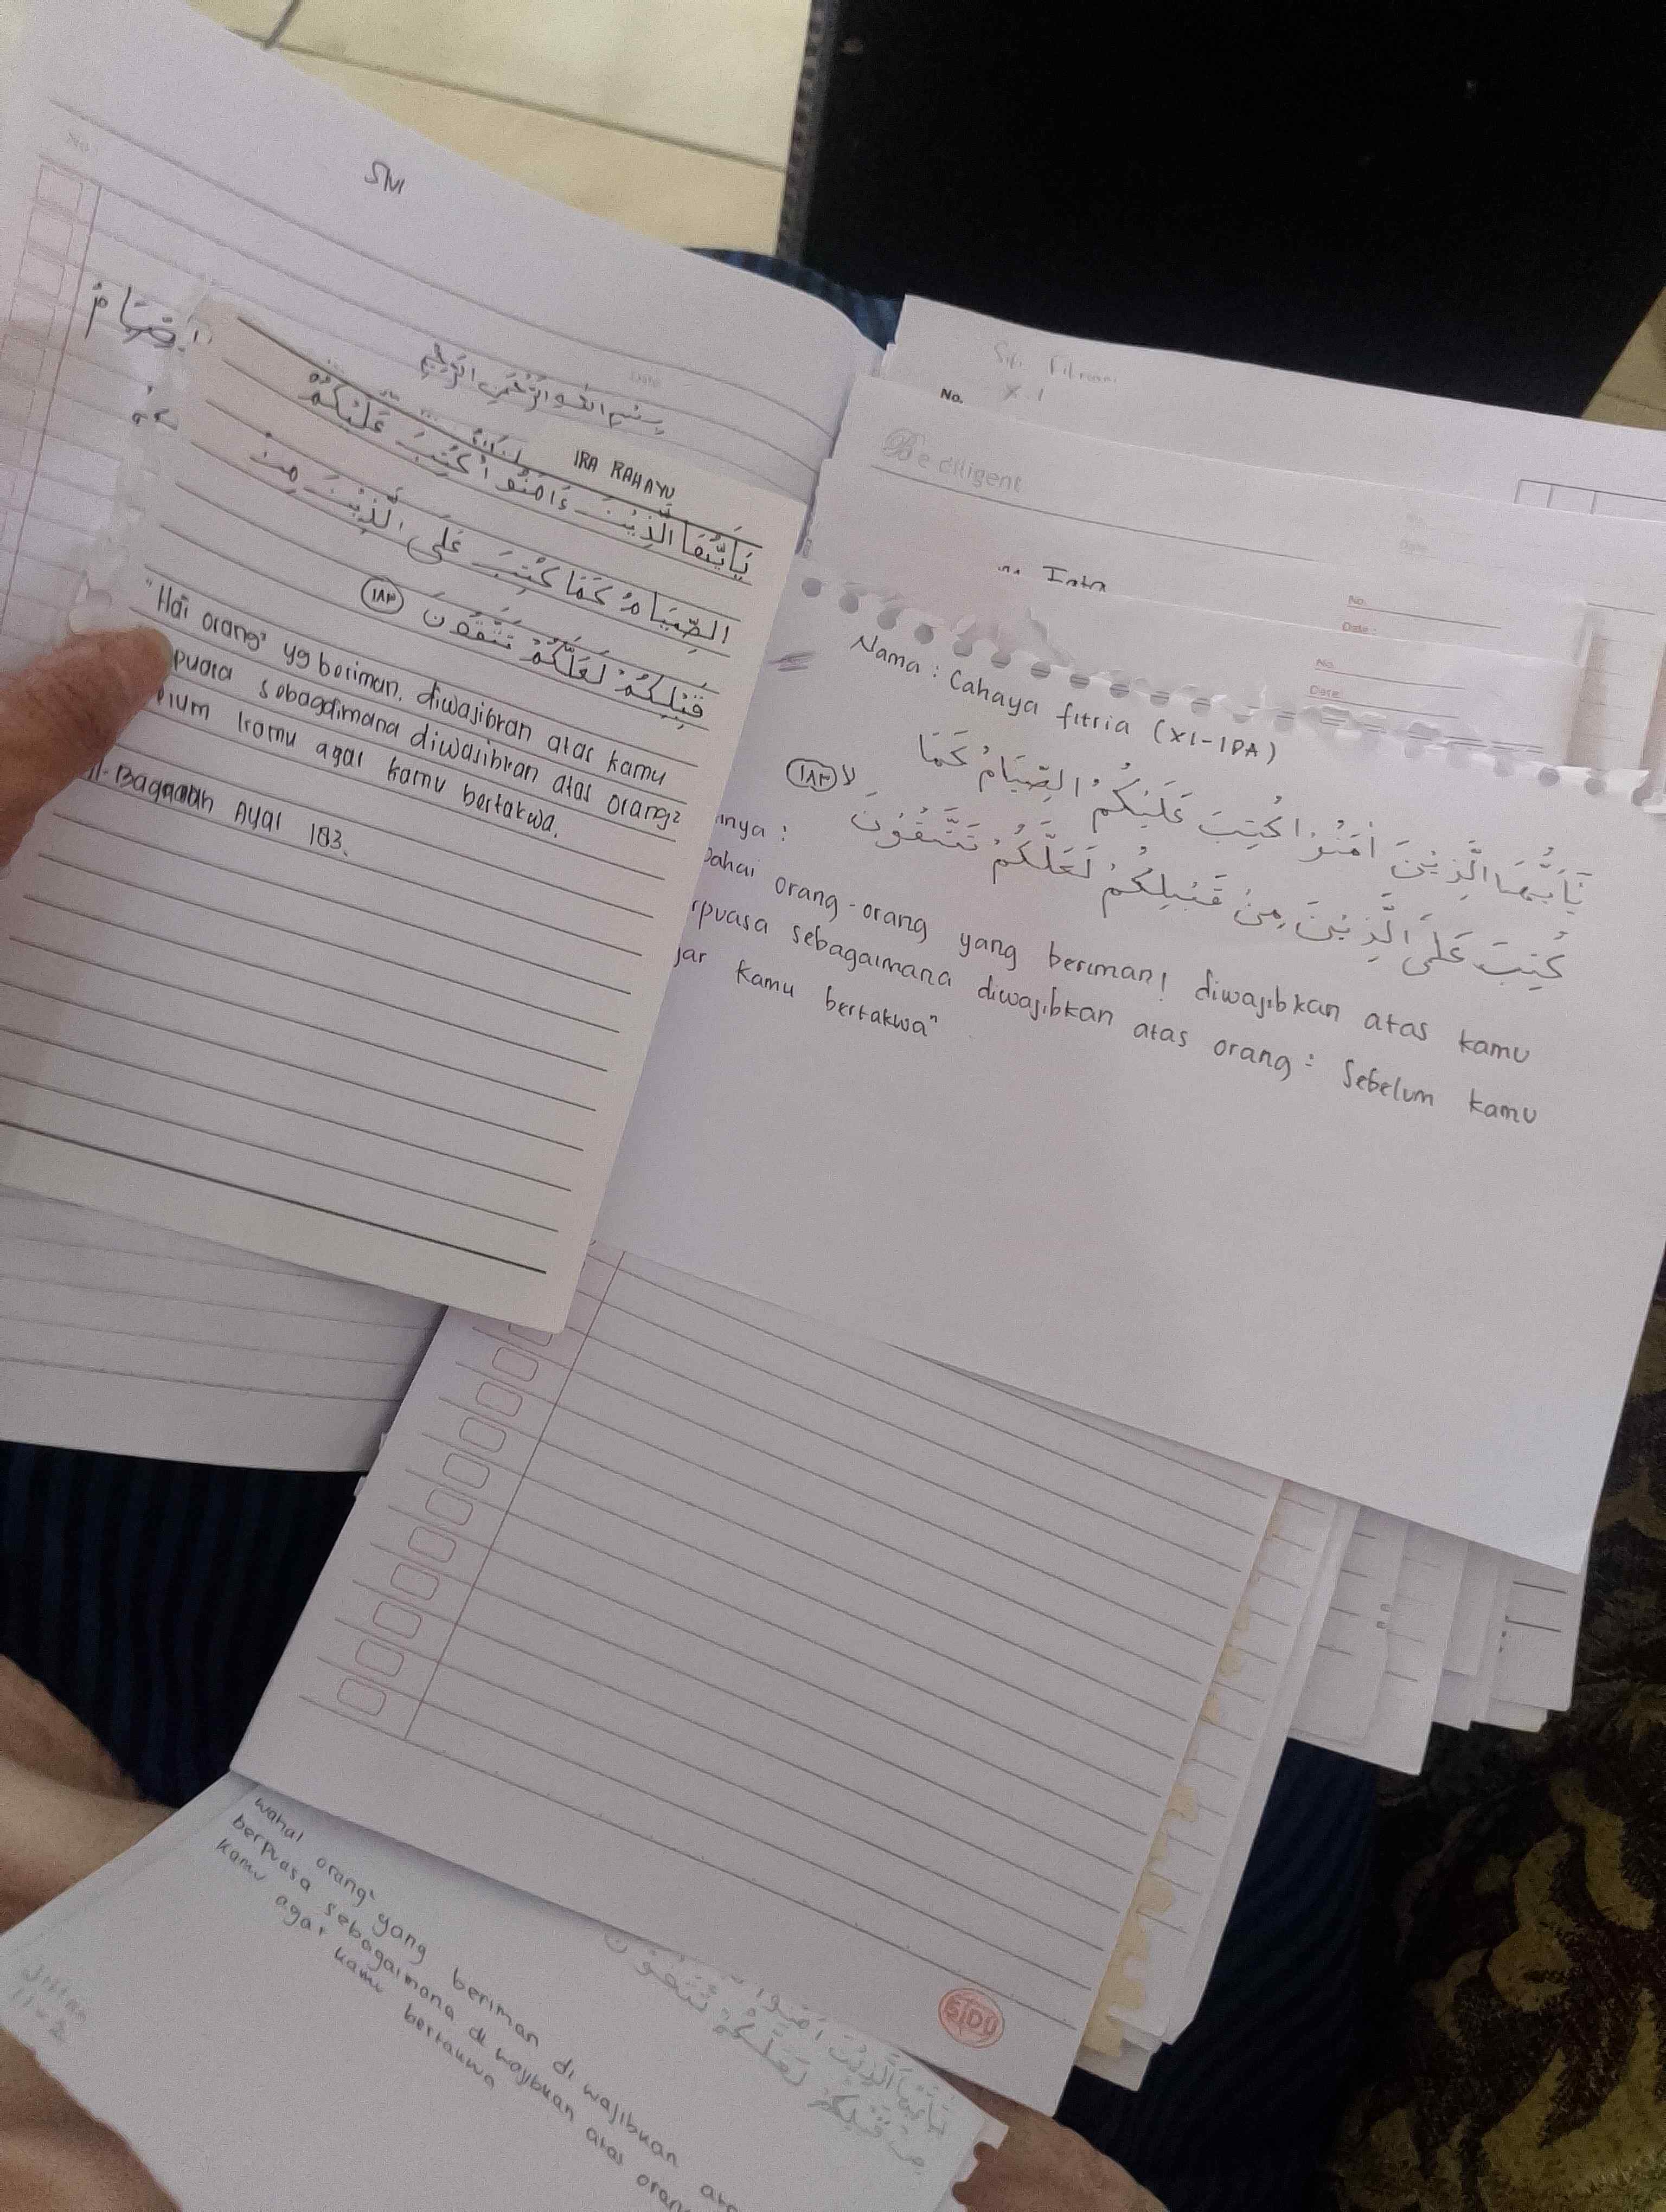 No
SIVI
صِيَامُ
بِسْمِ اللهِ الرَّحْمَنِ الرَّحِيمِ
IRA RAHAYU
يَاَيُّهَا الَّذِيْنَ ءَامَنُوْا كُتِبَ عَلَيْكُمُ
الصِّيَامُ كَمَا كُتِبَ عَلَى الَّذِيْنَ مِنْ
قَبْلِكُمْ لَعَلَّكُمْ تَتَّقُوْنَ ١٨٣
"Hai orang² yg beriman, diwajibkan atas kamu
puasa sebagaimana diwajibkan atas orang²
kamu agar kamu bertakwa.
Ayat 183.
Siti Fitriani
X.1
No.
Be diligent
No.
Date:
Intra
No.
Date
Nama : Cahaya fitria (XI-IPA)
يَاَيُّهَا الَّذِيْنَ اٰمَنُوْا كُتِبَ عَلَيْكُمُ الصِّيَامُ كَمَا
كُتِبَ عَلَى الَّذِيْنَ مِنْ قَبْلِكُمْ لَعَلَّكُمْ تَتَّقُوْنَ ١٨٣
nya :
orang-orang yang beriman! diwajibkan atas kamu
rpuasa sebagaimana diwajibkan atas orang: Sebelum kamu
kamu bertakwa"
SIDU
يَاَيُّهَا الَّذِيْنَ اٰمَنُوْا
قَبْلِكُمْ لَعَلَّكُمْ تَتَّقُوْنَ
wahai orang² yang beriman di wajibkan
berpuasa sebagaimana di atas
kamu agar kamu